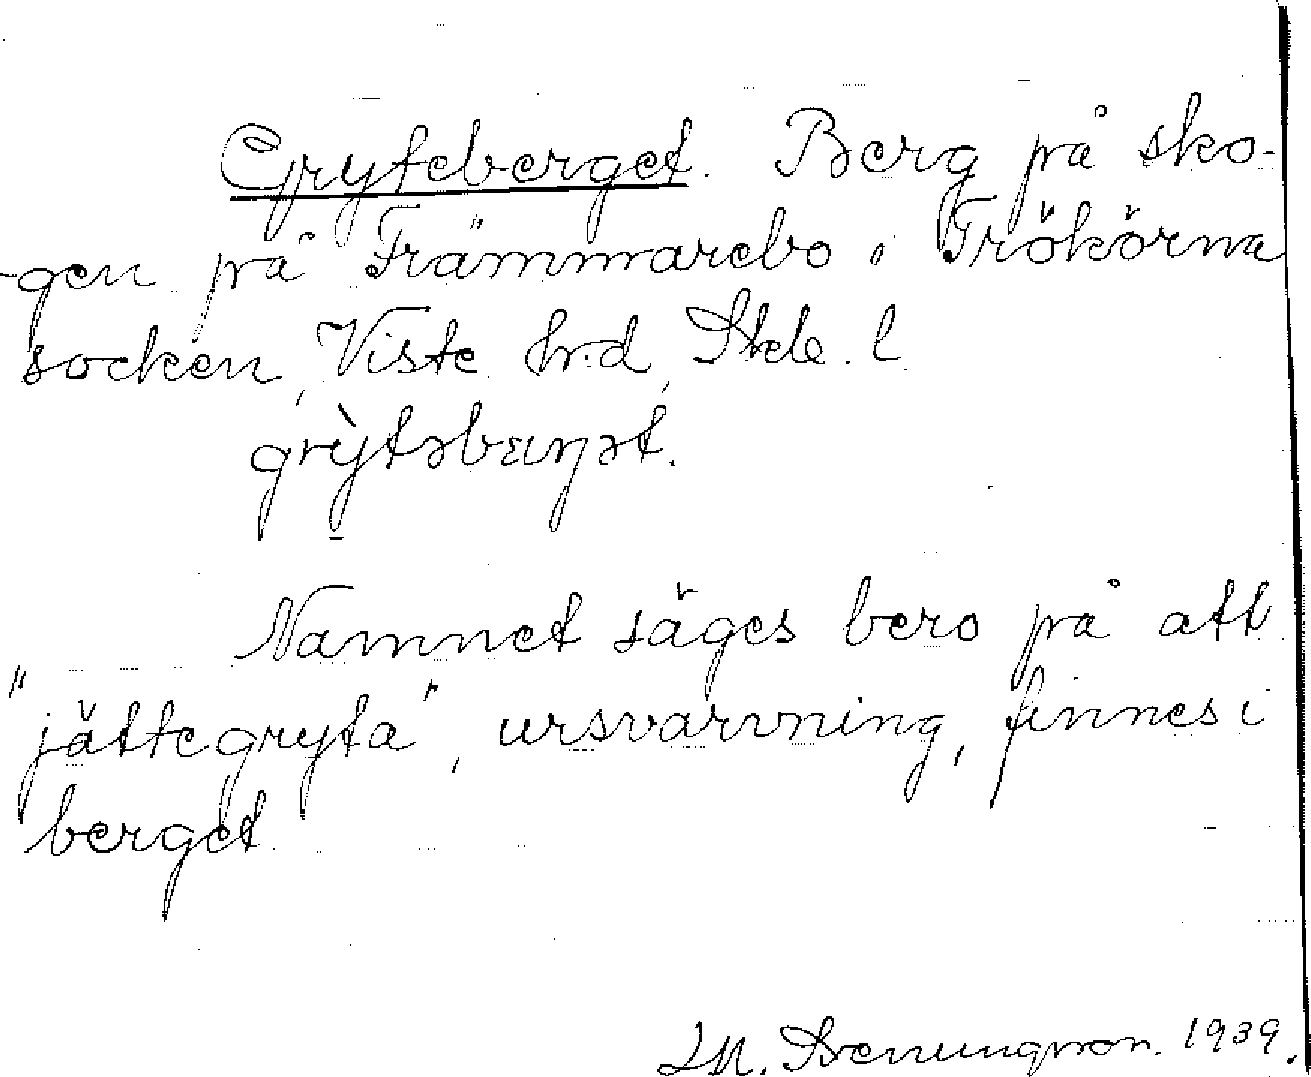 Gryteberget. Berg på sko-
-gen på Främmarebo i Trökörna
socken, Viste hrd, Skb. l.
grỳtəbærjət.
Namnet säges bero på att
"jättegryta", ursvarvning, finnes i
berget.
1939.